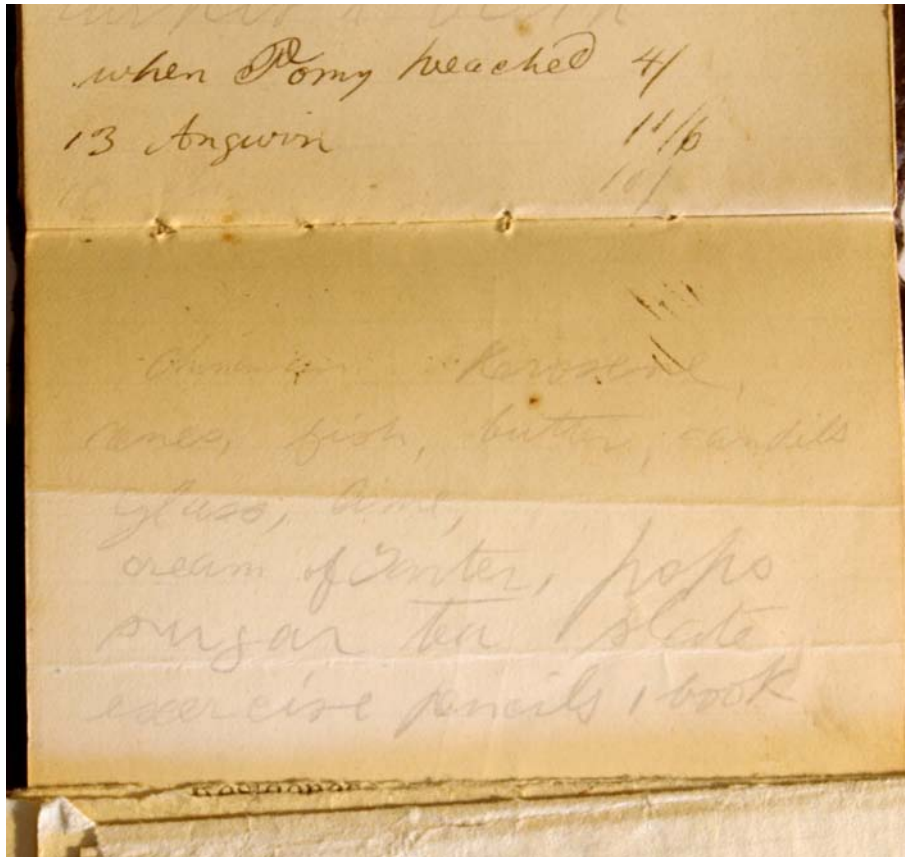 when Pomy preached 4/
13 Angwin 11/6
10/
Kerosene,
canes, fish, butter, candils
Glass, lime,
cream of Tarter, pops
sugar tea slate
exercise pencils 1 book